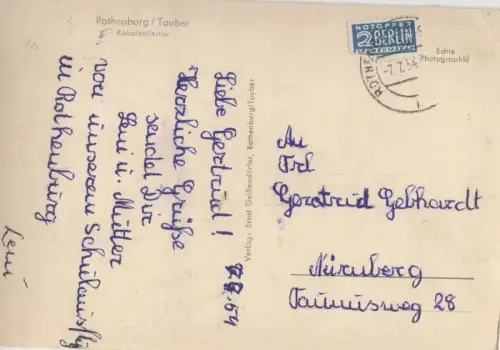 Rothenburg / Tauber
Kobolzellertor
Liebe Gertrud!
Herzliche Grüße
sendet Dir
Leni u. Mutter
von unserem Schulausflug
in Rothenburg
Leni
7.7.54
Verlag: Ernst Geißendörfer, Rothenburg/Tauber
NOTOPFER
2 BERLIN
STEUERMARKE
-7.7.54
Echte
Photographie
An
Frl
Gertrud Gebhardt
Nürnberg
Taunusweg 28